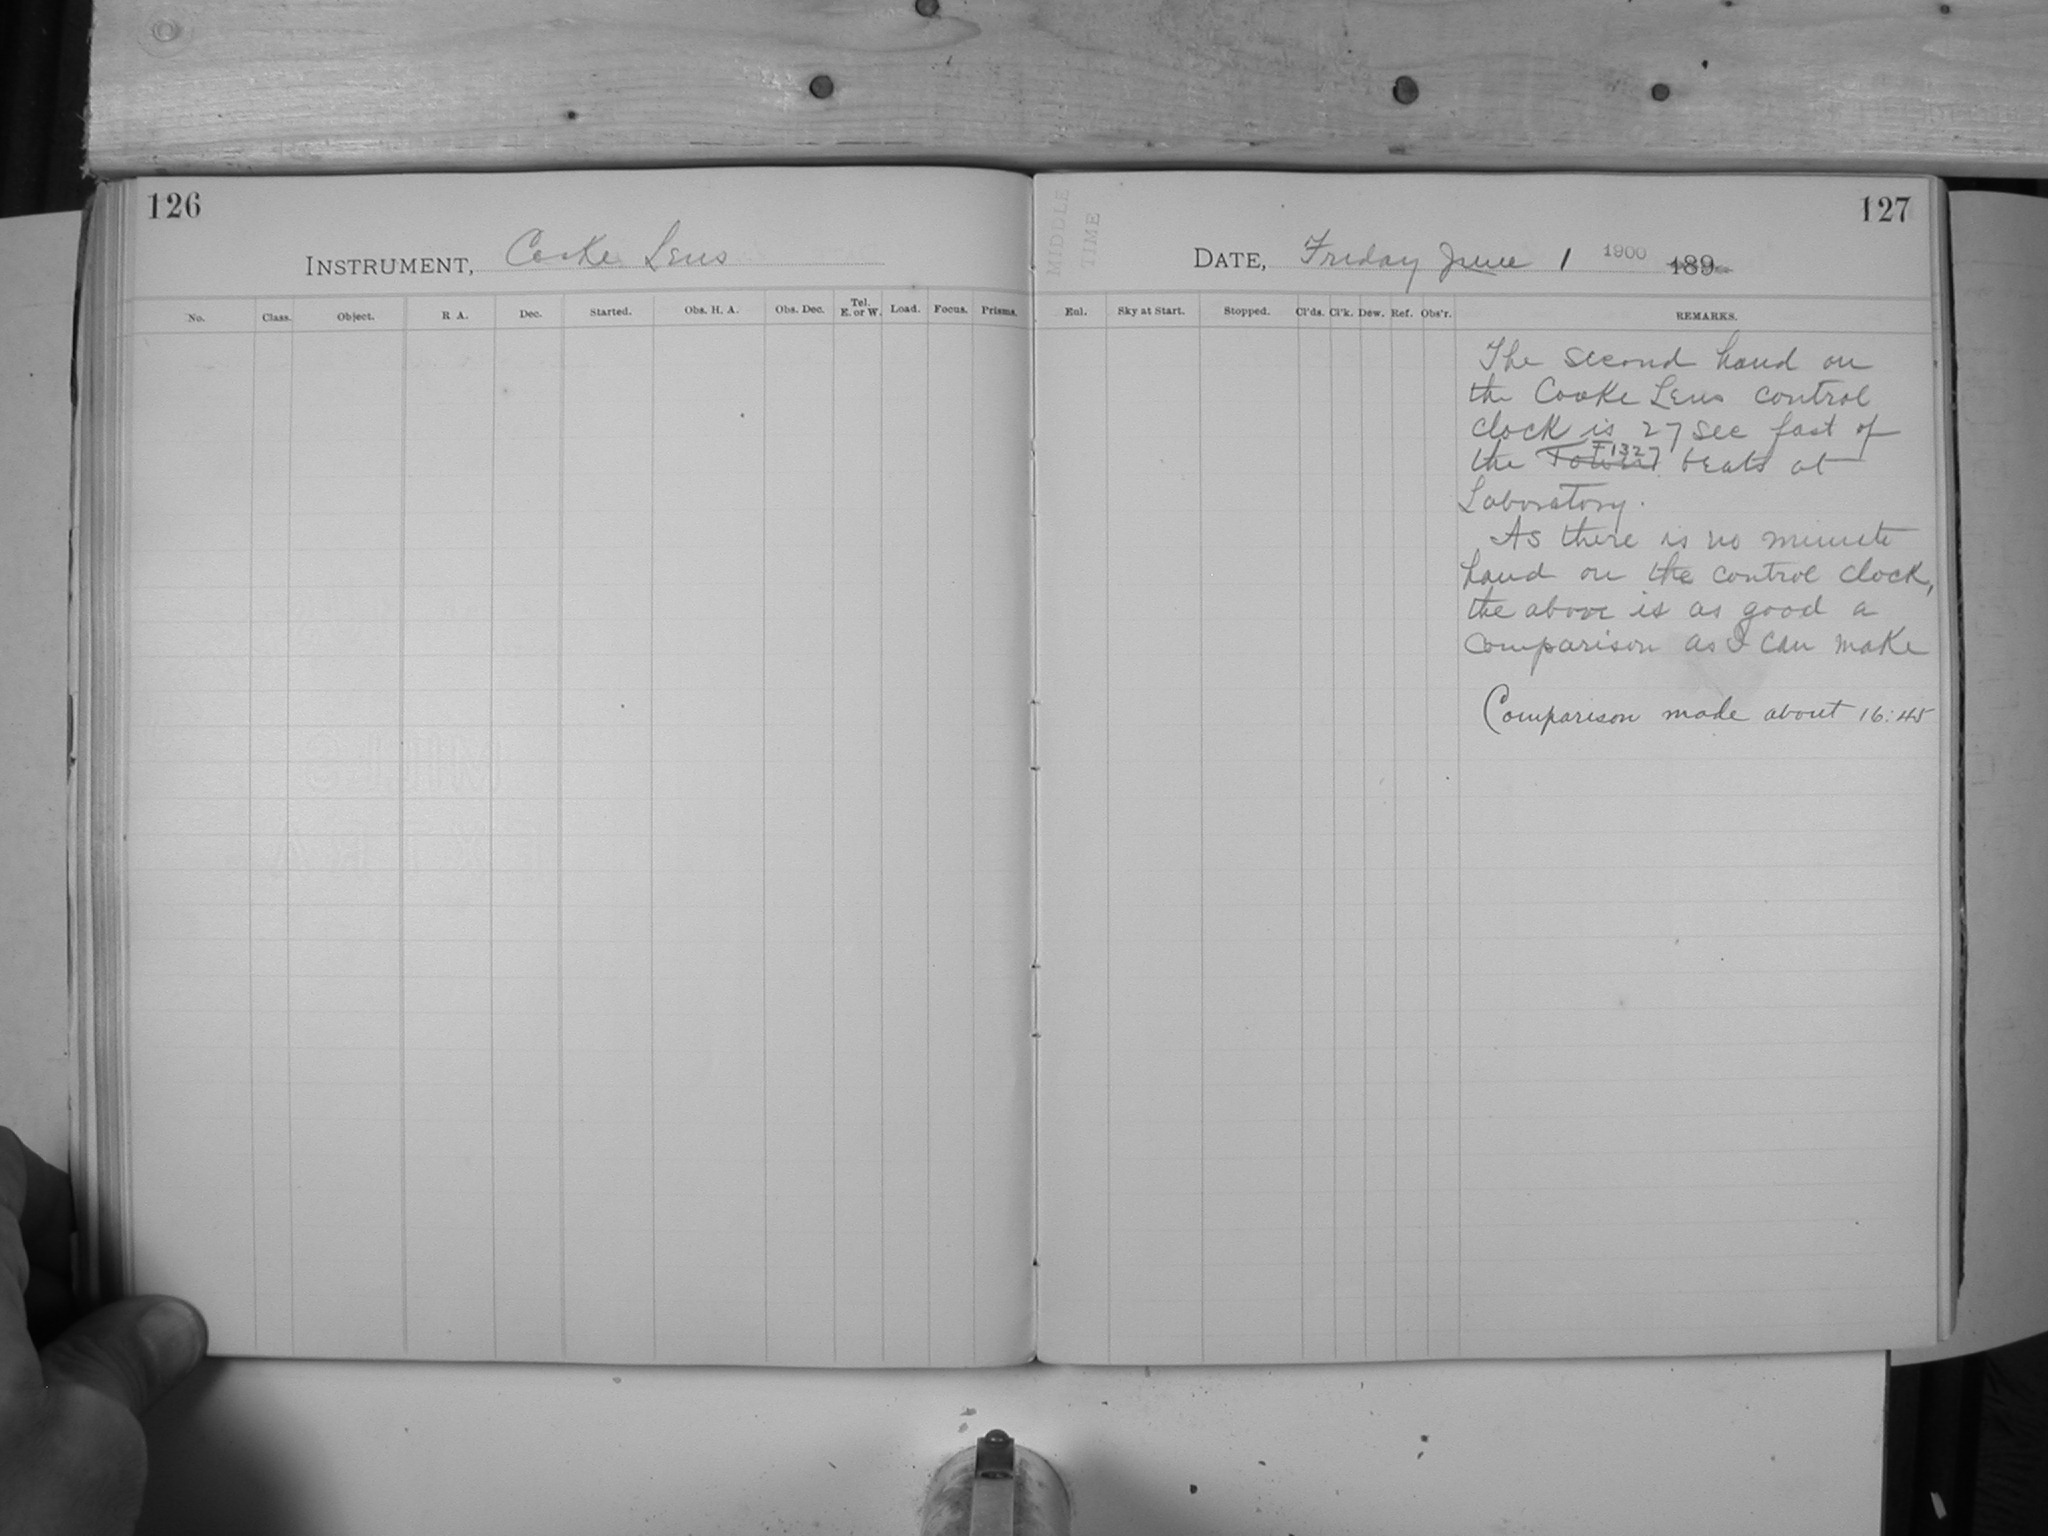 126
INSTRUMENT, Cooke Lens
No. Class. Object. R A. Dec. Started. Obs. H. A. Obs. Dec. Tel. E. or W. Load. Focus. Prisms.
MIDDLE
TIME
127
DATE, Friday June 1 1900 189
Eul. Sky at Start. Stopped. Cl'ds. Cl'k. Dew. Ref. Obs'r. REMARKS.
The second hand on
the Cooke Lens control
clock is 27 sec fast of
the Tower F1327 beats at
Laboratory.
As there is no minute
hand on the control clock,
the above is as good a
comparison as I can make
Comparison made about 16:45